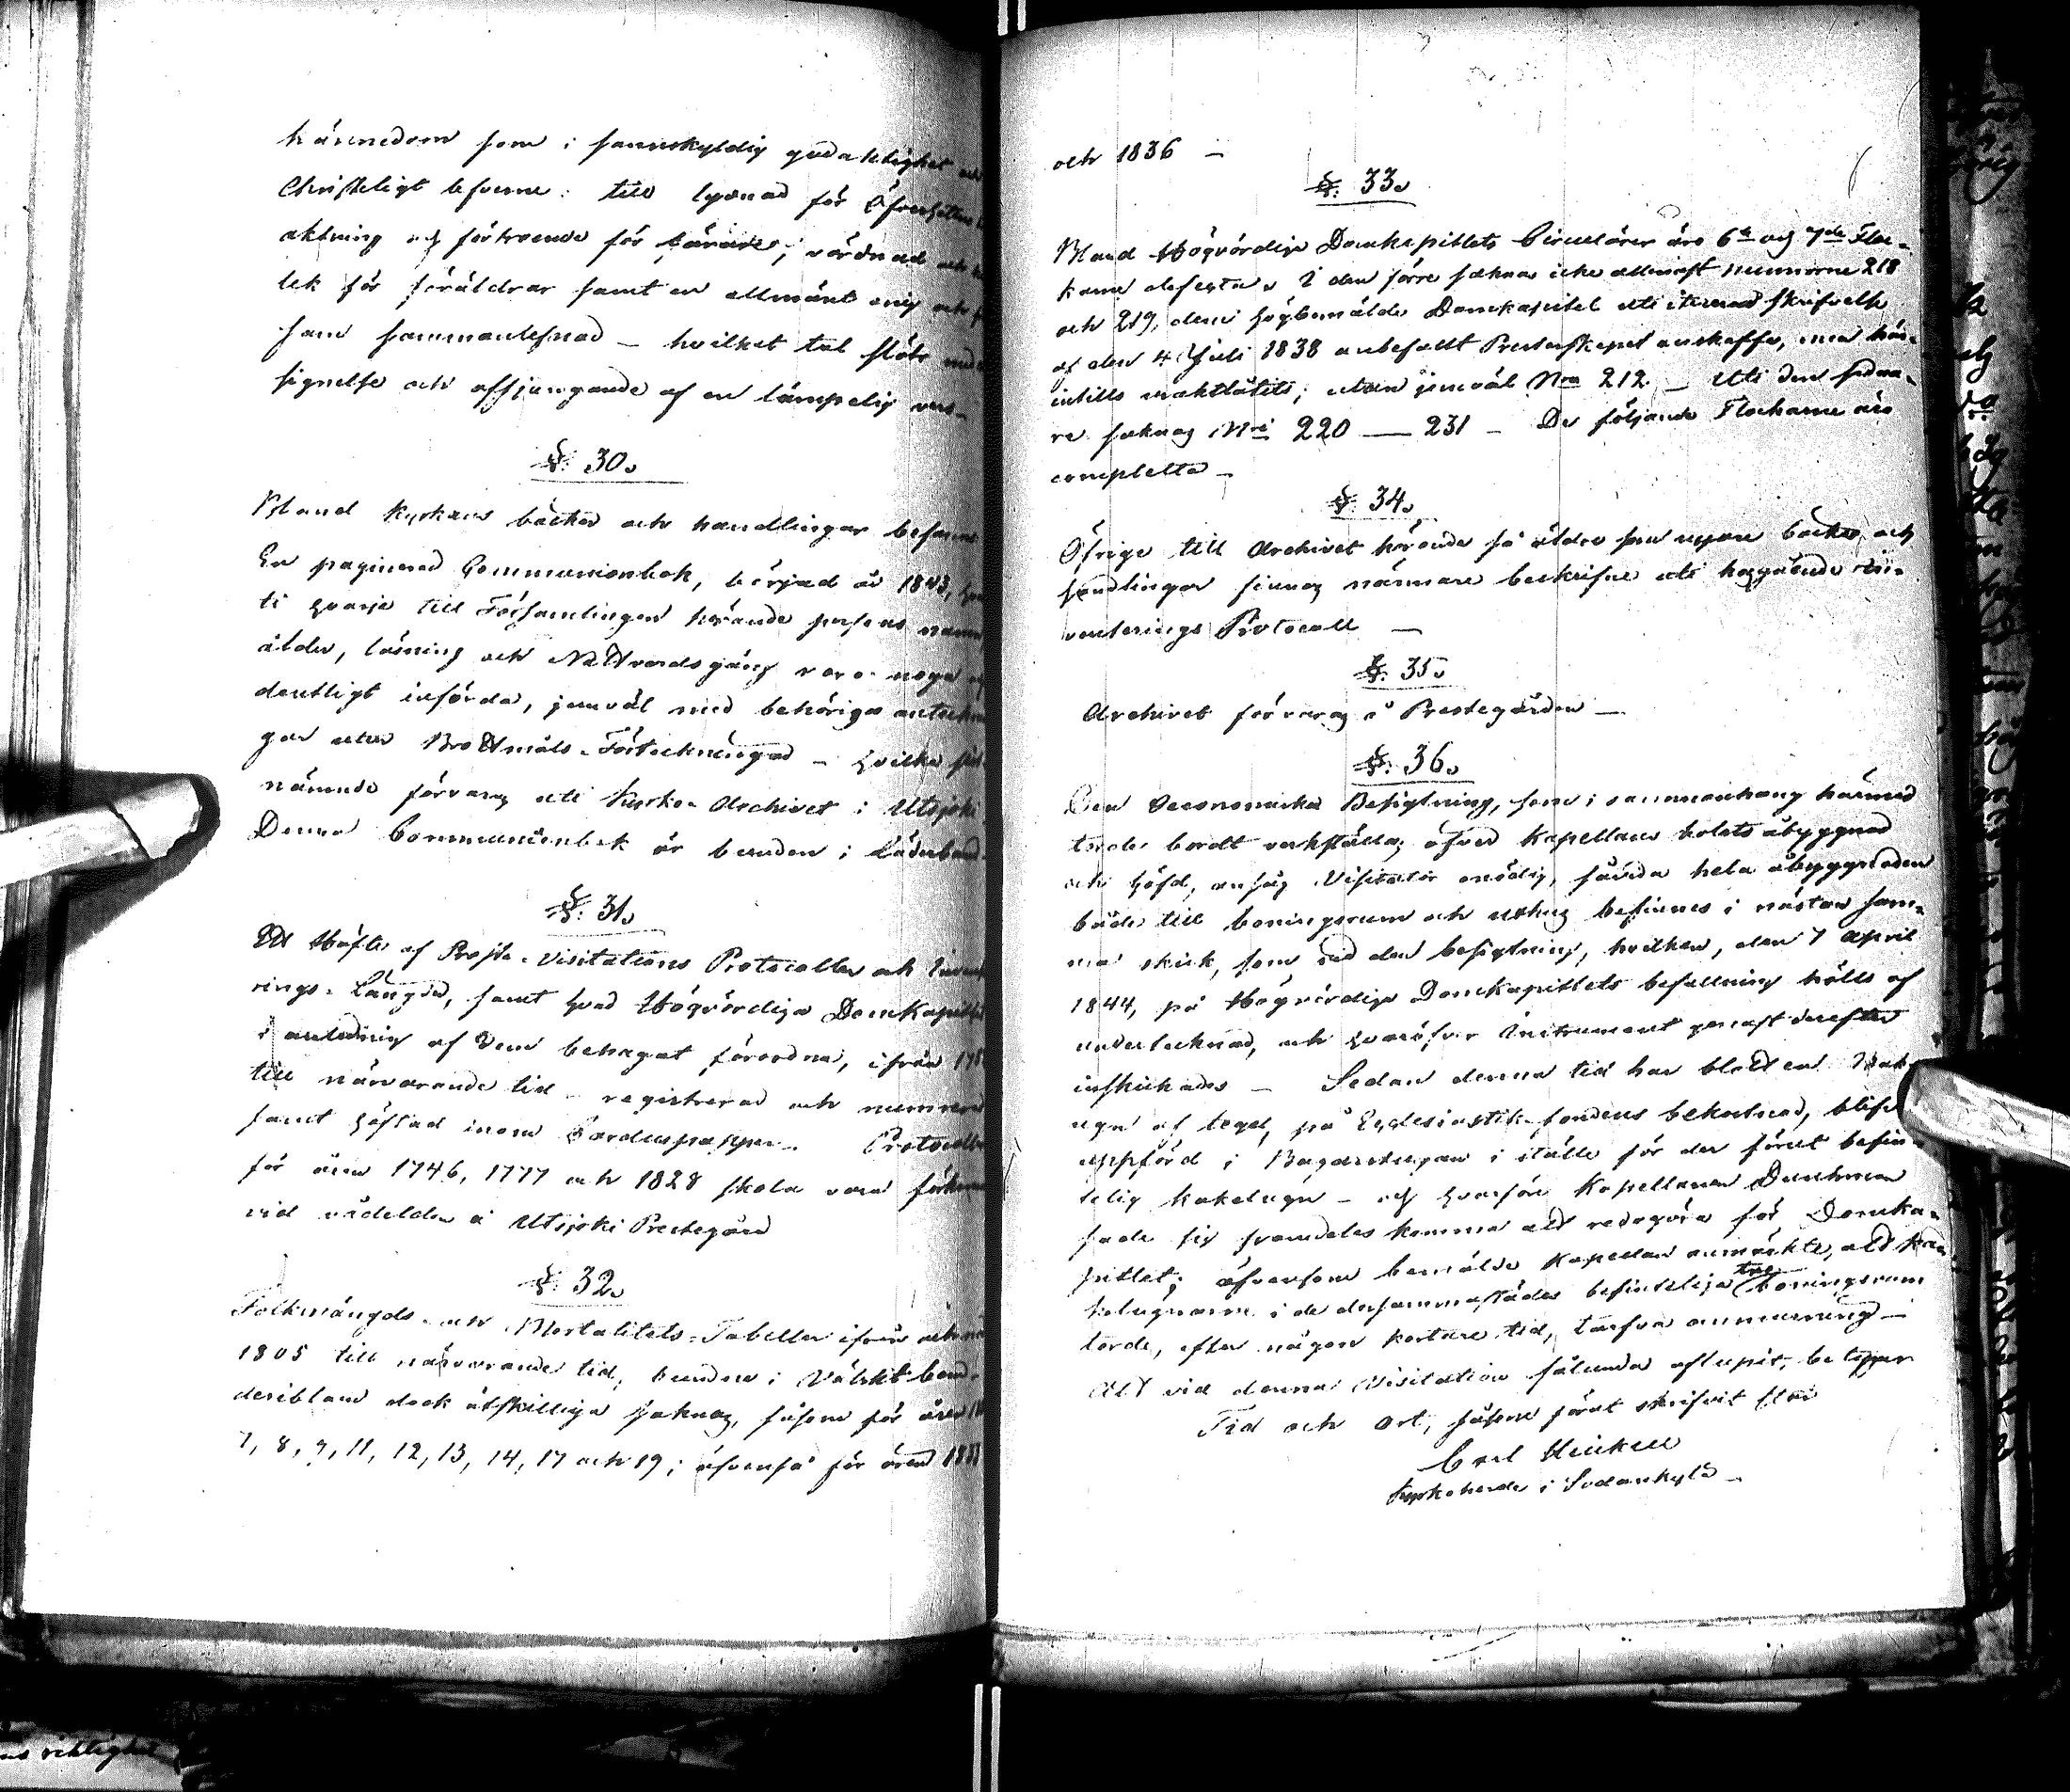 kännedom som i sannskyldig gudaktighet och
Christeligt lefverne: till lydnad för Öfverheten
aktning och förtroende för lärare; vördnad och
lek för föräldrar samt en allmänt enig och
sam sammanlefnad – hvilket tal slöts med
signelse och afsjungande af en lämpelig vers –
§. 30.
Bland kyrkans böcker och handlingar befanns
En paginerad Communionbok, börjad år 1843,
ti hvarje till Församlingen hörande persons namn
ålder, läsning och Nattvardsgång voro noga och
deutligt införda, jemväl med behöriga anteckn
gar utur Brottmåls-Förteckningar – hvilka
nämnde förvaras uti Kyrko-Archivet i Utsjoki
Denna Communionbok är bunden i Läderband.
§. 31.
Ett Häfte af Proste-Visitations Protocoller och Invent
rings-Längder, samt hvad Högvördiga Domkapitlet
i anledning af dem behagat förordna, ifrån
till närvarande tid – registrerad och numrerad
samt häftad inom Carduspapper. Protocoller
för åren 1746, 1777 och 1828 skola vara förkomne
vid vådelden å Utsjoki Prestegård
§. 32.
Folkmängds- och Mortalitets-Tabeller ifrån och med
1805 till närvarande tid, bundne i Välskt band,
deribland dock åtskilliga saknas, såsom för åren
7, 8, 9, 11, 12, 13, 14, 17 och 19; äfvenså för åren
och 1836 –
§. 33.
Bland Högvördiga Domkapitlets Circulärer äro 6te och 7de Floc-
karne defecta. I den förre saknas icke allenast numrorne 218
och 219, dem högbemälde Domkapitel uti itererad skrifvelse
af den 4 Juli 1838 anbefallt Presterskapet anskaffa, men här-
intills uraktlåtits; utan jemväl Nro 212. – Uti den sedna-
re saknas Nri 220 — 231 – De följande Flockarne äro
completta –
§. 34.
Öfrige till Archivet hörande så äldre som nyare böcker och
handlingar finnas närmare beskrifne uti hosgående In-
venterings Protocoll –
§. 35.
Archivet förvaras å Prestegården –
§. 36.
Den Oeconomiska Besigtning, som i sammanhang härmed
torde bordt verkställas öfver Kapellans bolets åbyggnad
och häfd, ansåg Visitator onödig, såvida hela åbyggnaden
både till boningsrum och uthus befinnes i nästan sam-
ma skick, som vid den besigtning, hvilken, den 7 April
1844, på Högvördiga Domkapitlets befallning hölls af
undertecknad, och hvaröfver Instrument genast derefter
inskickades – Sedan denna tid har blott en Bak-
ugn af tegel, på Ecclesiastik-fondens bekostnad, blifvit
uppförd i Bagarstugan i stället för den förut befin-
telig kakelugn – och hvarföre Kapellanen
sade sig framdeles komma att redogöra för Domka-
pitlet; äfvensom bemälde Kapellan anmärkte, att
kelugnarne i de dersammastädes befinteliga tre boningsrum
torde, efter någon kortare tid, tarfva ommurning –
Att vid denna Visitation sålunda aflupit, betygar
Tid och Ort, såsom förut skrifvit står
Carl Heickell
Kyrkoherde i Sodankylä –